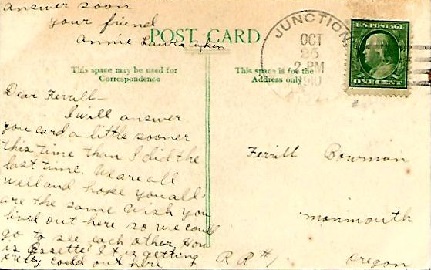 answer soon
your friend
Annie Laura
POST CARD
This space may be used for
Correspondence
This space is for the
Address only
JUNCTION
OCT
2 PM
U.S. POSTAGE
ONE CENT
Dear Ferrill—
I will answer
you card a little sooner
this time than I did the
last time. We are all
well and hope you all
are the same. Wish you
lived out here so we could
go to see each other. How
is Essette? It is getting
pretty cold out here
Ferrill Bowman
Monmouth
R.R. #1 Oregon